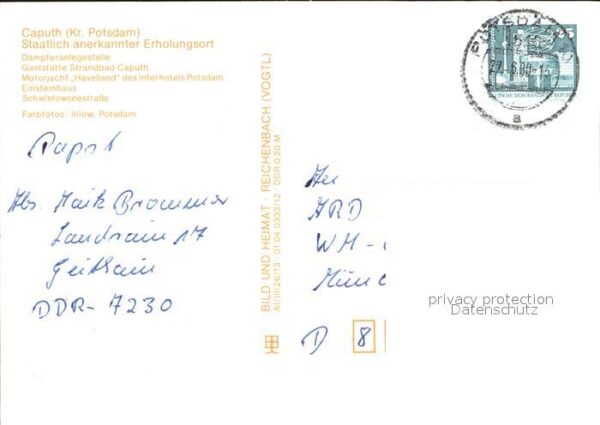 Caputh (Kr. Potsdam)
Staatlich anerkannter Erholungsort
Dampferanlegestelle
Gaststätte Strandbad Caputh
Motorjacht „Havelland" des Interhotels Potsdam
Einsteinhaus
Schwielowseestraße
Farbfotos: Ihlow, Potsdam
BILD UND HEIMAT · REICHENBACH (VOGTL)
A1/III/26/13 01 04 0333/12 DDR 0,20 M
25
a
Abs. Maik Brommer
Landrain 17
Geithain
DDR-7230
An
ARD
WM-
Münc
D 8
privacy protection
Datenschutz